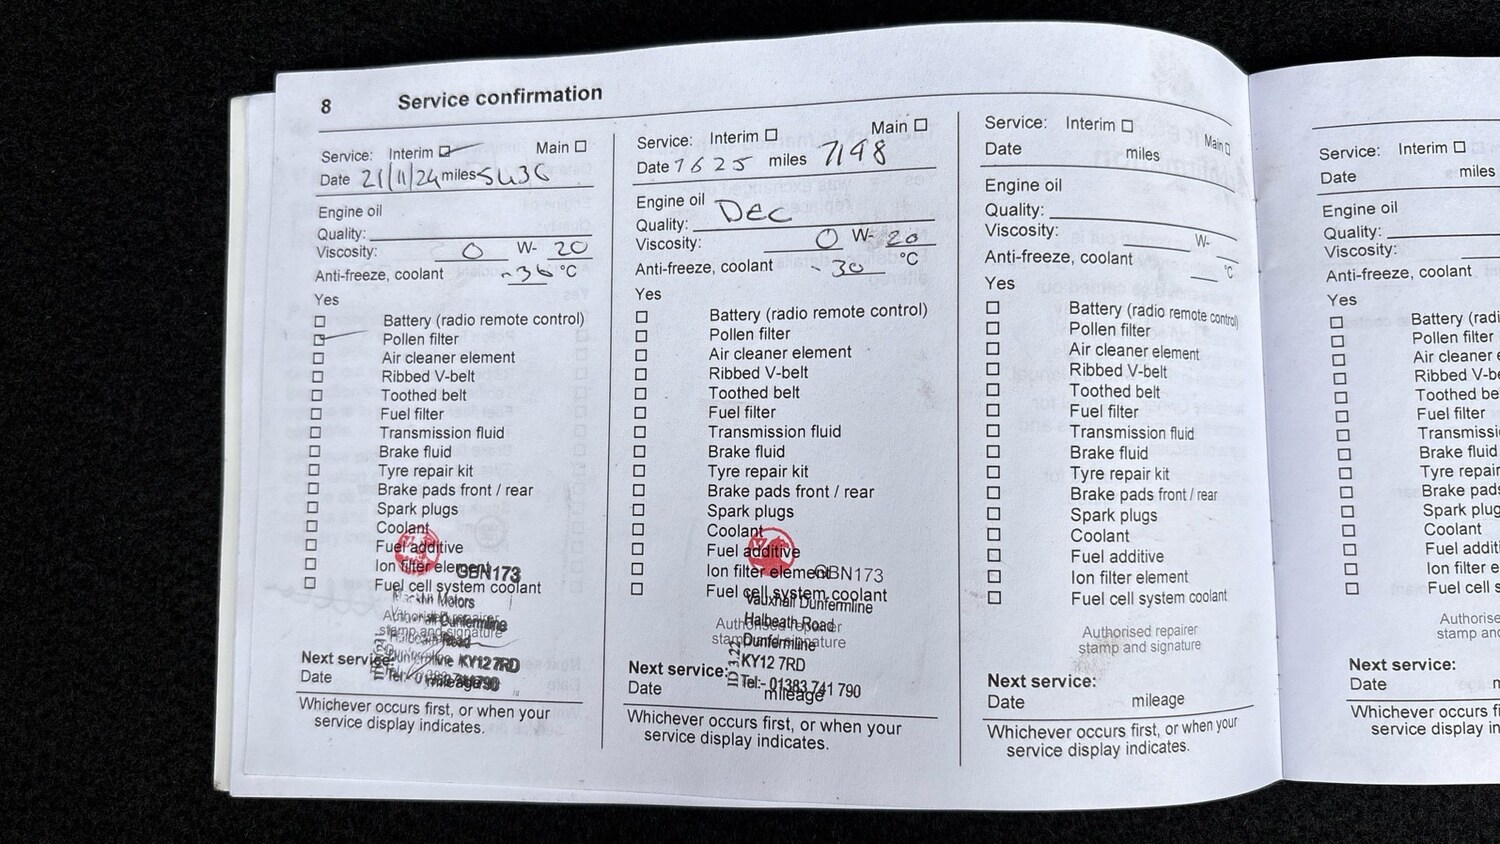 8 Service confirmation
Service: Interim ☐ Main ☐
Date 21/11/24 miles
Engine oil
Quality:
Viscosity: 0 W- 20
Anti-freeze, coolant °C
Yes
☐ Battery (radio remote control)
☐ Pollen filter
☐ Air cleaner element
☐ Ribbed V-belt
☐ Toothed belt
☐ Fuel filter
☐ Transmission fluid
☐ Brake fluid
☐ Tyre repair kit
☐ Brake pads front / rear
☐ Spark plugs
☐ Coolant
☐ Fuel additive
☐ Ion filter element
GBN173
☐ Fuel cell system coolant
Motors
Authorised repairer
stamp and signature
Dunfermline
Road
KY12 7RD
Next service:
Date mileage
Whichever occurs first, or when your
service display indicates.
Service: Interim ☐ Main ☐
Date 7 6 25 miles 7198
Engine oil
Quality: Dec
Viscosity: 0 W- 20
Anti-freeze, coolant -30 °C
Yes
☐ Battery (radio remote control)
☐ Pollen filter
☐ Air cleaner element
☐ Ribbed V-belt
☐ Toothed belt
☐ Fuel filter
☐ Transmission fluid
☐ Brake fluid
☐ Tyre repair kit
☐ Brake pads front / rear
☐ Spark plugs
☐ Coolant
☐ Fuel additive
☐ Ion filter element
GBN173
☐ Fuel cell system coolant
Vauxhall Dunfermline
Halbeath Road
Authorised repairer
stamp and signature
Dunfermline
KY12 7RD
Tel:- 01383 741 790
Next service:
Date mileage
Whichever occurs first, or when your
service display indicates.
Service: Interim ☐ Main ☐
Date miles
Engine oil
Quality:
Viscosity: W-
Anti-freeze, coolant °C
Yes
☐ Battery (radio remote control)
☐ Pollen filter
☐ Air cleaner element
☐ Ribbed V-belt
☐ Toothed belt
☐ Fuel filter
☐ Transmission fluid
☐ Brake fluid
☐ Tyre repair kit
☐ Brake pads front / rear
☐ Spark plugs
☐ Coolant
☐ Fuel additive
☐ Ion filter element
☐ Fuel cell system coolant
Authorised repairer
stamp and signature
Next service:
Date mileage
Whichever occurs first, or when your
service display indicates.
Service: Interim ☐
Date miles
Engine oil
Quality:
Viscosity:
Anti-freeze, coolant
Yes
☐ Battery (radi
☐ Pollen filter
☐ Air cleaner e
☐ Ribbed V-be
☐ Toothed be
☐ Fuel filter
☐ Transmissi
☐ Brake fluid
☐ Tyre repair
☐ Brake pads
☐ Spark plug
☐ Coolant
☐ Fuel additi
☐ Ion filter e
☐ Fuel cell s
Authorised
stamp and
Next service:
Date m
Whichever occurs fi
service display in